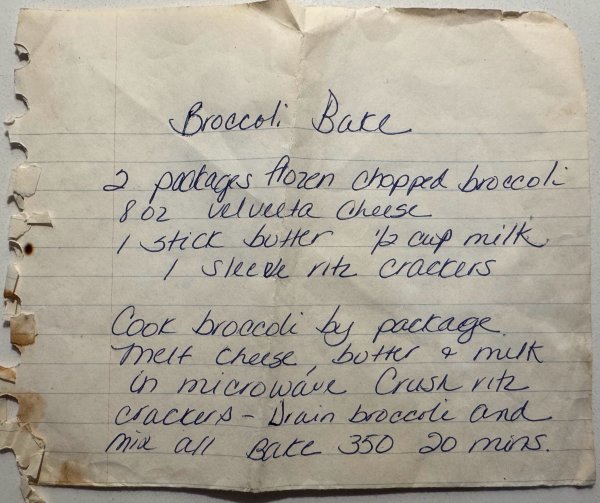 Broccoli Bake
2 packages frozen chopped broccoli
8 oz velveeta cheese
1 stick butter 1/2 cup milk
1 sleeve ritz crackers
Cook broccoli by package.
Melt cheese, butter & milk
in microwave Crush ritz
crackers - Drain broccoli and
mix all Bake 350 20 mins.